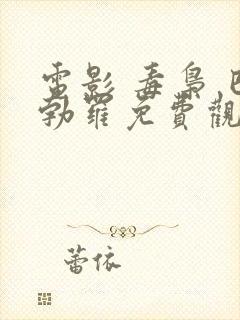 電影 毒梟 巴
勃羅免費觀
蕾依